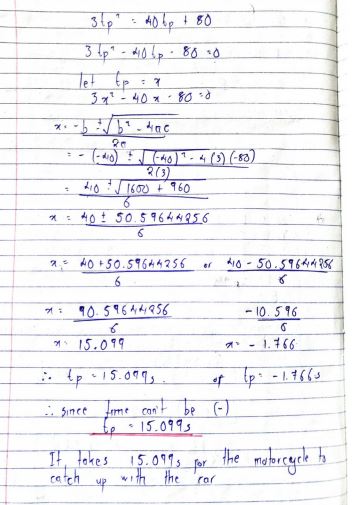 3tp² = 40tp + 80
3tp² - 40tp - 80 = 0
let tp = x
3x² - 40x - 80 = 0
x = -b ± √b² - 4ac
2a
= -(-40) ± √(-40)² - 4(3)(-80)
2(3)
= 40 ± √1600 + 960
6
x = 40 ± 50.59644256
6
x = 40 + 50.59644256 or 40 - 50.59644256
6 6
x = 90.59644256 -10.596
6 6
x = 15.099 x = -1.766
∴ tp = 15.099s or tp = -1.766s
∴ since time can't be (-)
tp = 15.099s
It takes 15.099s for the motorcycle to
catch up with the car